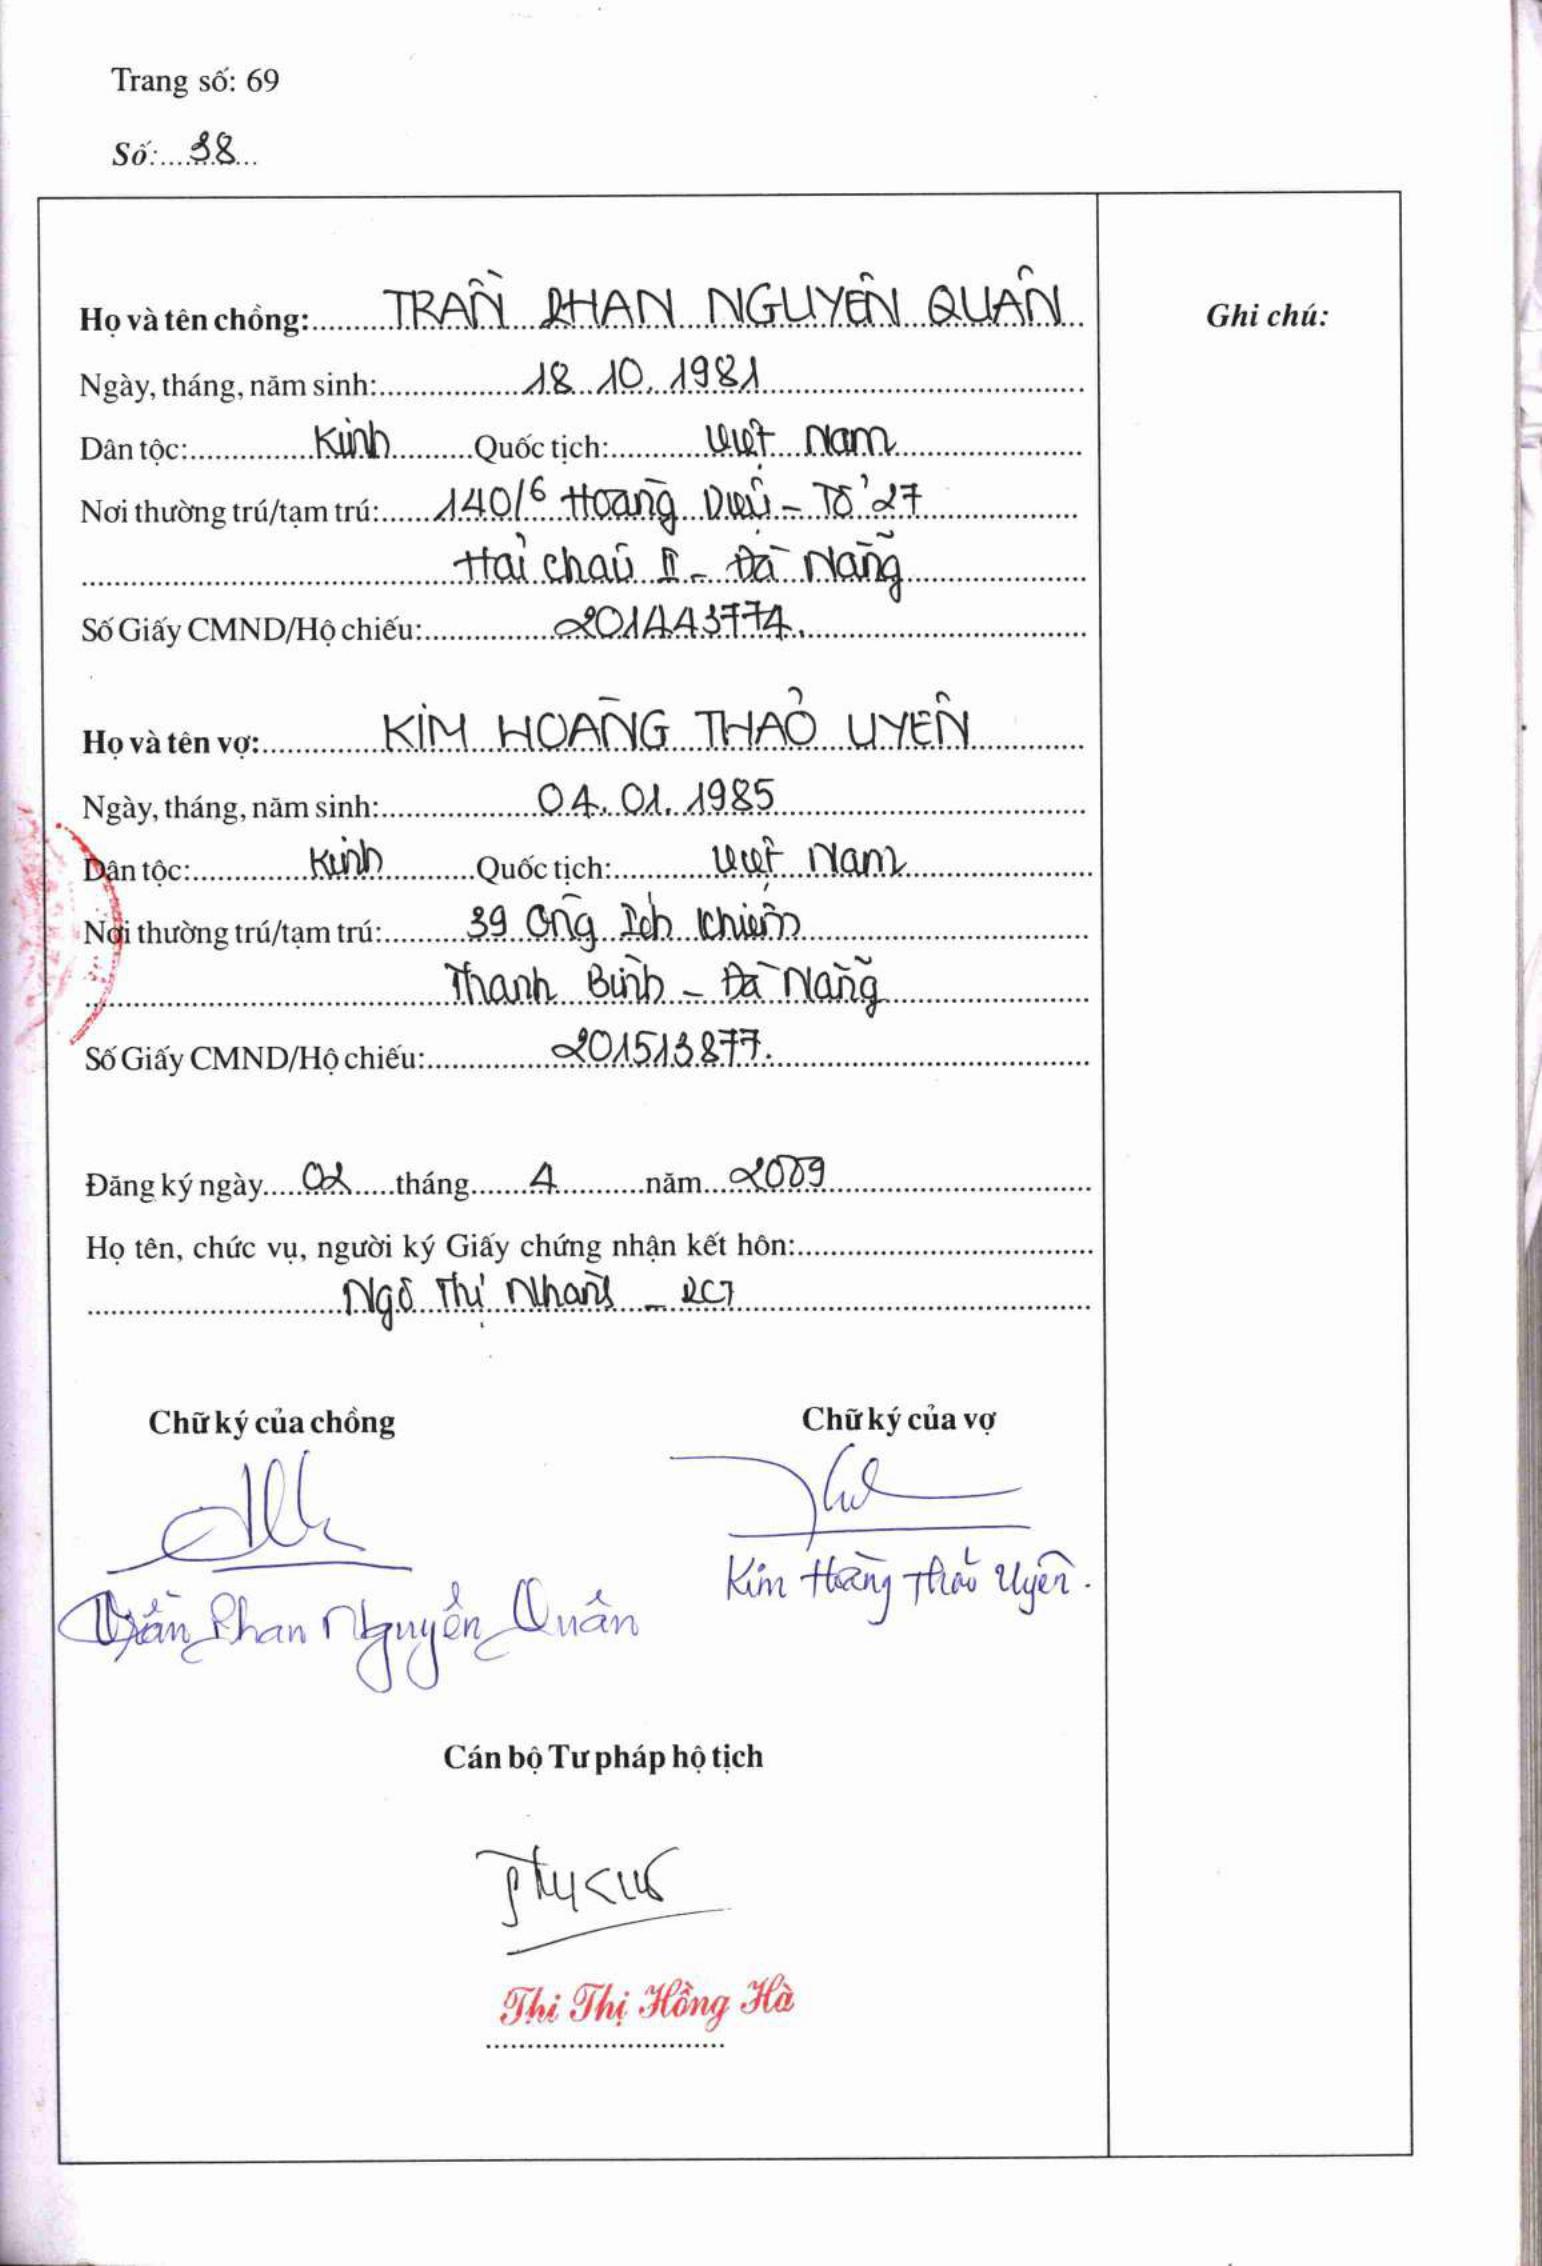 Trang số: 69
Số: 38
Họ và tên chồng: TRẦN PHAN NGUYÊN QUÂN
Ghi chú:
Ngày, tháng, năm sinh: 18.10.1981
Dân tộc: Kinh Quốc tịch: Việt Nam
Nơi thường trú/tạm trú: 140/6 Hoàng Diệu - Tổ 27
Hải Châu II - Đà Nẵng
Số Giấy CMND/Hộ chiếu: 201443774.
Họ và tên vợ: KIM HOÀNG THẢO UYÊN
Ngày, tháng, năm sinh: 04.01.1985
Dân tộc: Kinh Quốc tịch: Việt Nam
Nơi thường trú/tạm trú: 39 Ông Ích Khiêm
Thanh Bình - Đà Nẵng
Số Giấy CMND/Hộ chiếu: 201513877.
Đăng ký ngày 02 tháng 4 năm 2009
Họ tên, chức vụ, người ký Giấy chứng nhận kết hôn:
Ngô Thị Nhàn - PCT
Chữ ký của chồng Chữ ký của vợ
Kim Hoàng Thảo Uyên.
Trần Phan Nguyên Quân
Cán bộ Tư pháp hộ tịch
Thi Thị Hồng Hà